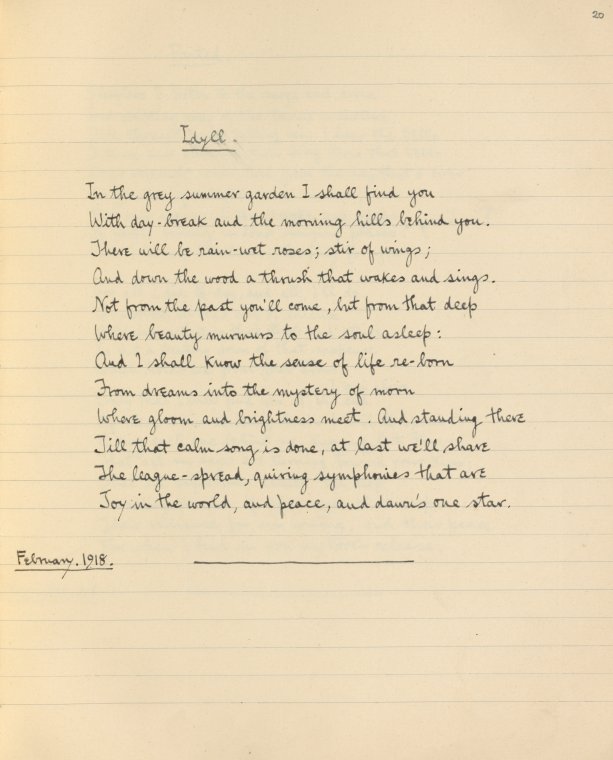 20
Idyll.
In the grey summer garden I shall find you
With day-break and the morning hills behind you.
There will be rain-wet roses; stir of wings;
And down the wood a thrush that wakes and sings.
Not from the past you'll come, but from that deep
Where beauty murmurs to the soul asleep:
And I shall know the sense of life re-born
From dreams into the mystery of morn
Where gloom and brightness meet. And standing there
Till that calm song is done, at last we'll share
The league-spread, quiring symphonies that are
Joy in the world, and peace, and dawn's one star.
February. 1918.